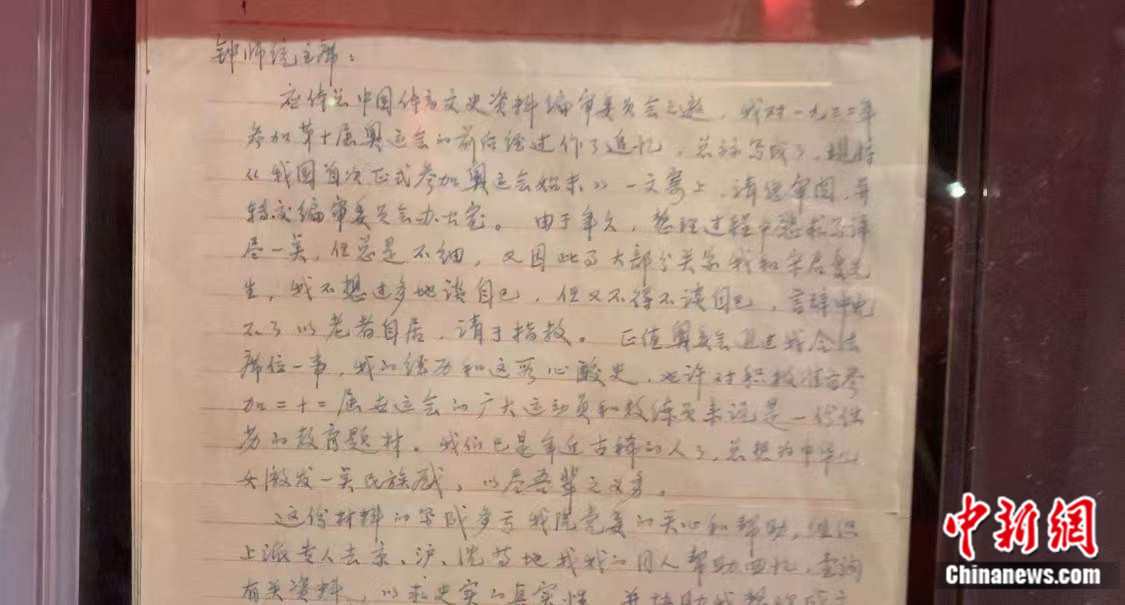 钟师统主席：
应体总中国体育文史资料编审委员会之邀，我对一九三二年
参加第十届奥运会的前后经过作了追忆，总算写成了，现将
《我国首次正式参加奥运会始末》一文寄上，请您审阅，并
转交编审委员会办公室。由于年久，整理过程中想求写详
尽一点，但总是不细，又因此事大部分关系我和宋君复先
生，我不想过多地谈自己，但又不得不谈自己，言辞中免
不了以老者自居，请予指教。正值奥委会通过我合法
席位一事，我的经历和这页心酸史，也许对积极准备参
加二十二届奥运会的广大运动员和教练员来说是一份
的教育题材。我们已是年近古稀的人了，总想为中华儿
女激发一点民族感，以尽吾辈之义务。
这份材料的写成多亏我院党委的关心和帮助，组织
上派专人去京、沪、沈等地找我的同人帮助回忆，查询
有关资料，以求史实的真实性，并协助我整理成文
中新网
Chinanews.com